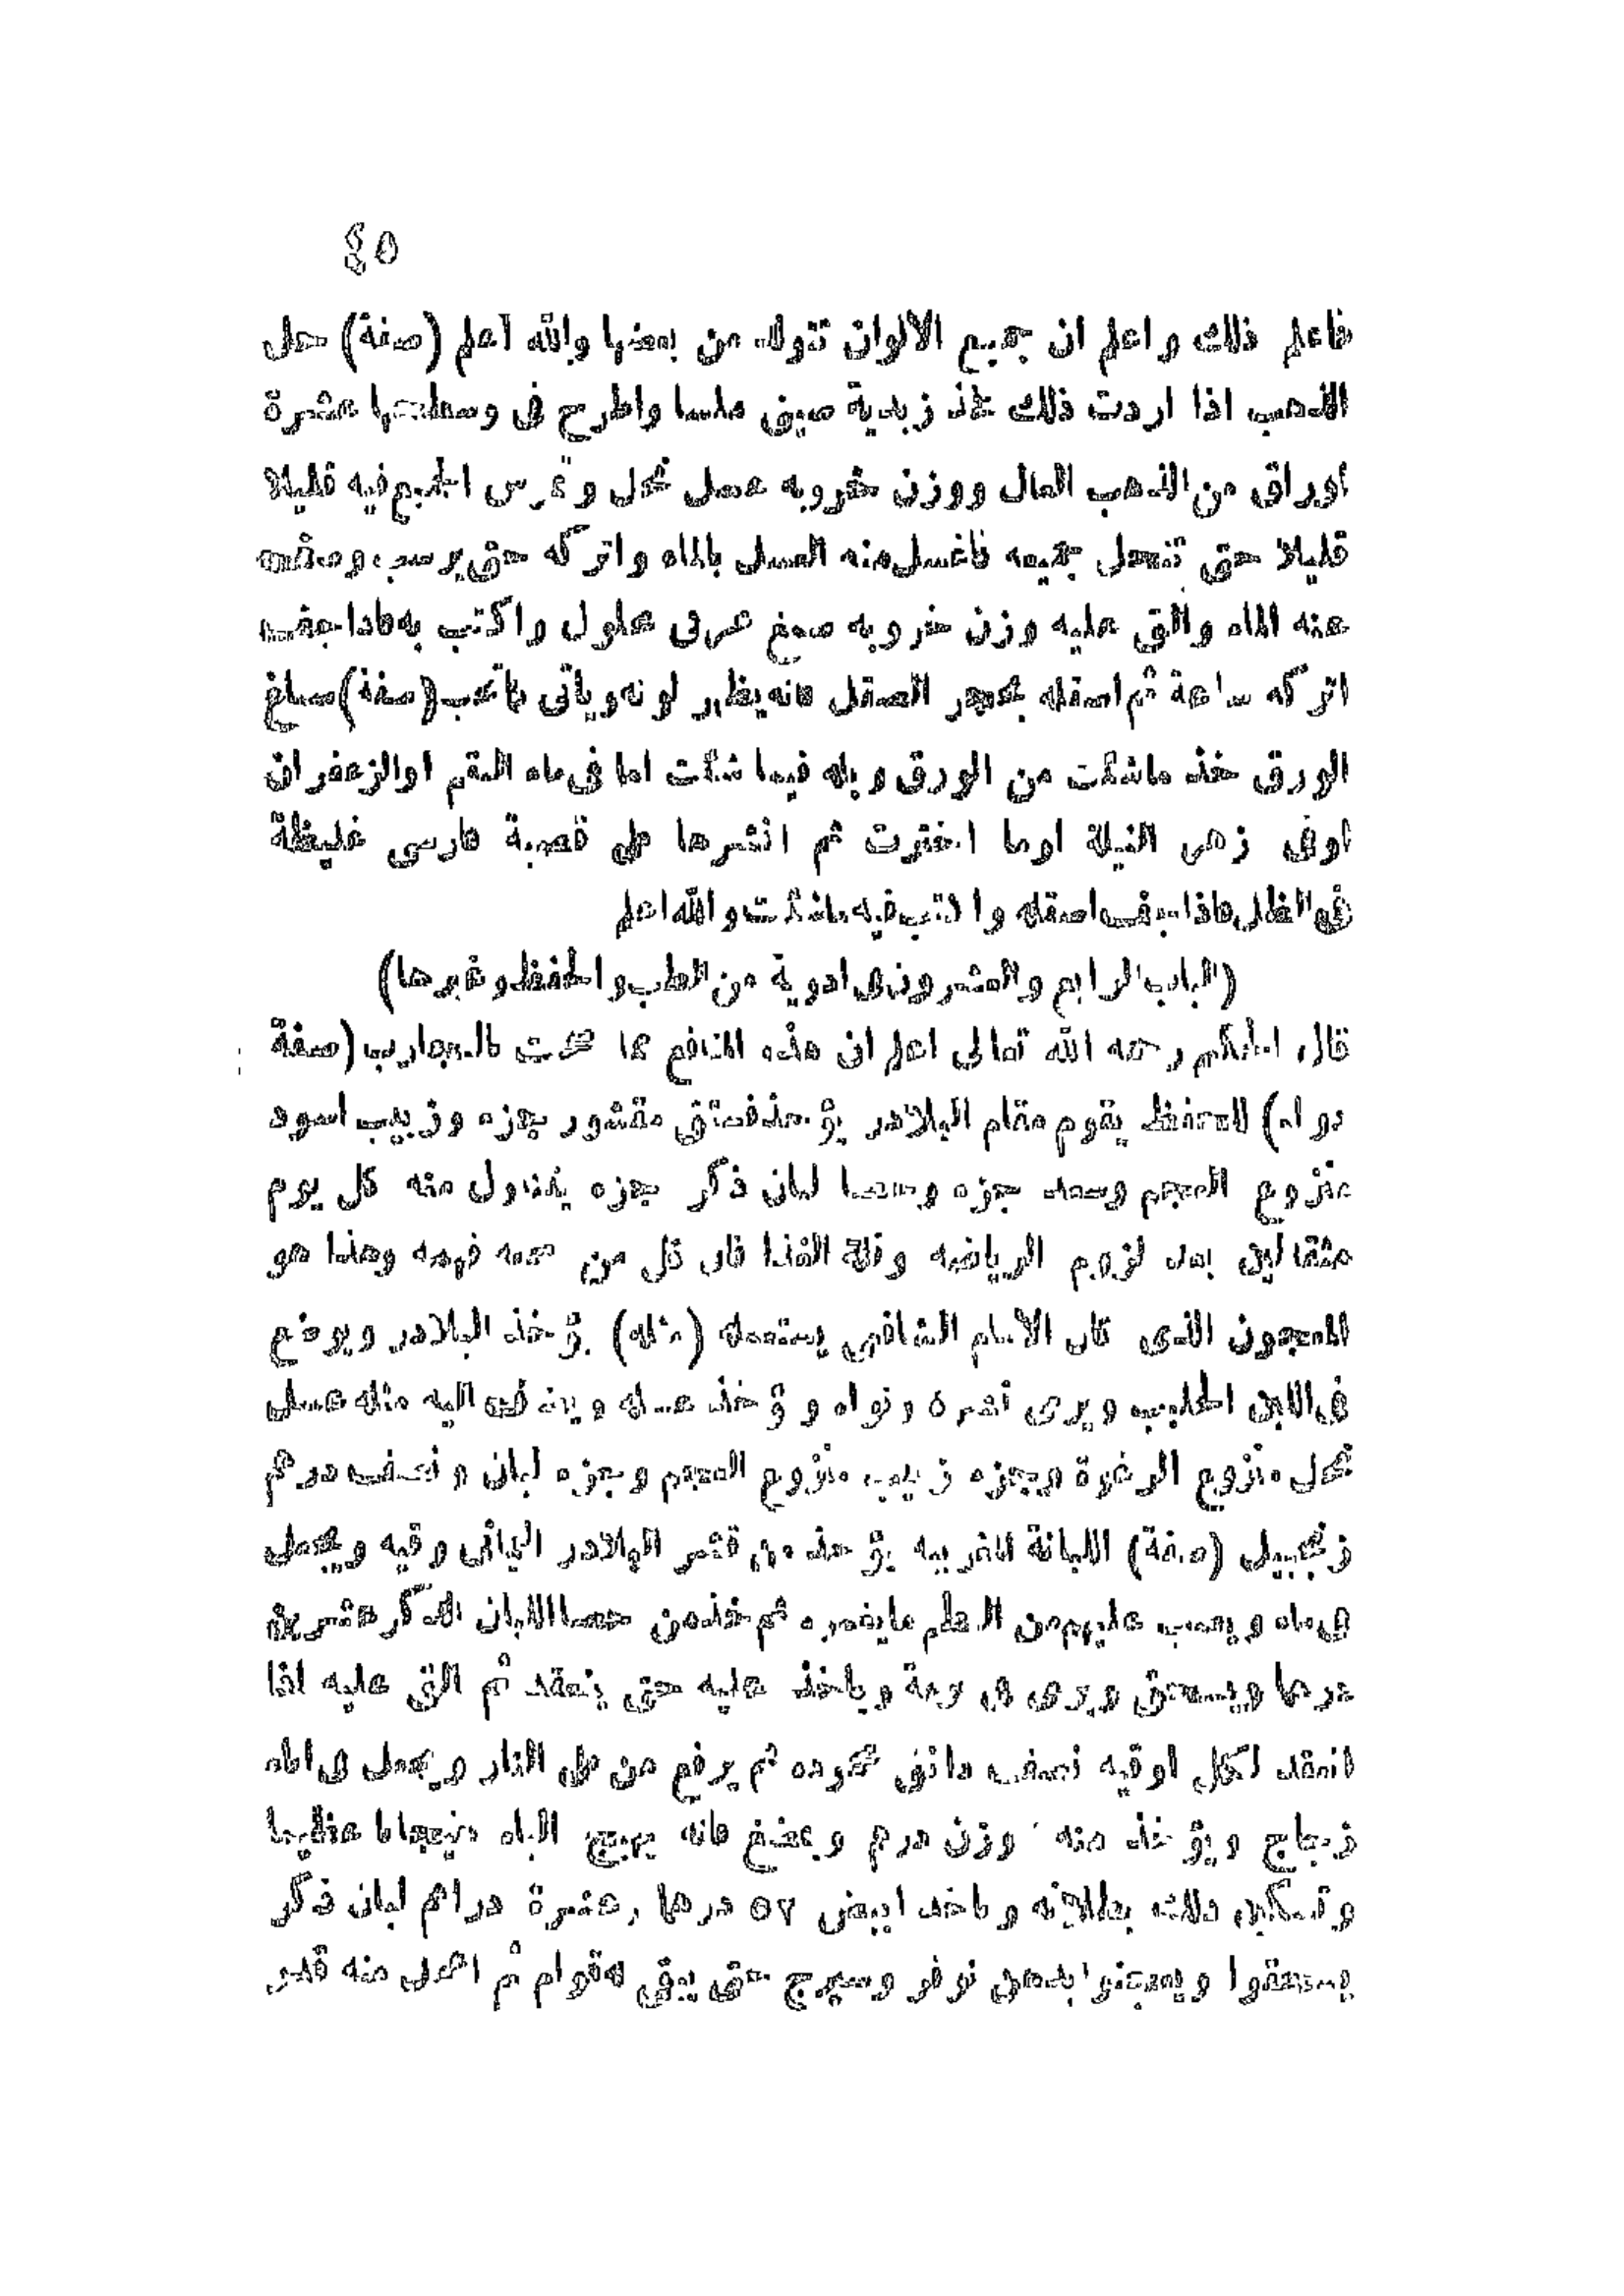 ٤٥
فاعلم ذلك واعلم ان جميع الالوان تتولد من بعضها والله أعلم (صفة) حل
الذهب اذا اردت ذلك خذ زبدية صينى ملسا واطرح فى وسطها عشرة
أوراق من الذهب العال ووزن خروبه عسل نحل وتمرس الجميع فيه قليلا
قليلا حتى تنحل جميعه فاغسل منه العسل بالماء واتركه حتى يرسب وصفيه
عنه الماء والق عليه وزن خروبه صمغ عربى محلول واكتب به فاذا جف
اتركه ساعة ثم اصقله بحجر الصقل فانه يظهر لونه ويأتى ما تحب (صفة) صباغ
الورق خذ ماشئت من الورق وبله فيما شئت اما فى ماء البقم اوالزعفران
اوفى زهر النيلة اوما اخترت ثم انشرها على قصبة فارسى غليظة
فى الظل فاذا جف اصقله واكتب فيه ماشئت والله اعلم
(الباب الرابع والعشرون فى ادوية من الطب والحفظ وغيرها)
قال الحكيم رحمه الله تعالى اعلم ان هذه المنافع مما صحت بالتجارب (صفة
دواء) للحفظ يقوم مقام البلادر يؤخذ فستق مقشور جزء وزبيب اسود
منزوع العجم وسعد جزء وحصا لبان ذكر جزء يتناول منه كل يوم
مثقالين بعد لزوم الرياضه وقلة الغذا فان كل من فهمه وهذا هو
المعجون الذى كان الامام الشافعى يستعمله (مثله) يؤخذ البلادر ويوضع
فى اللبن الحليب ويرمى قشره ونواه ويؤخذ عسله ويضاف اليه مثله عسل
نحل منزوع الرغوة وجزء زبيب منزوع العجم وجزء لبان ونصف درهم
زنجبيل (صفة) اللبانة الغريبه يؤخذ من قشر البلادر اوقيه ويجعل
فى ماء ويصب عليهم من ما يغمره ثم خذ من حصا اللبان الذكر عشرين
درهما ويسحق ويرمى فى وياخذ عليه حتى ينعقد ثم القى عليه اذا
انعقد لكل اوقيه نصف دانق محموده ثم يرفع من على النار ويجعل فى اناء
زجاج ويؤخذ منه وزن درهم ويمضغ فانه يهيج الباه تهيجا عظيما
وتسكين ذلك ابيض ٥٧ درهما وعشرة دراهم لبان ذكر
يسحقوا ويعجنوا بدهن نوفر وسيرج حتى يبقى له قوام ثم اعمل منه قدر